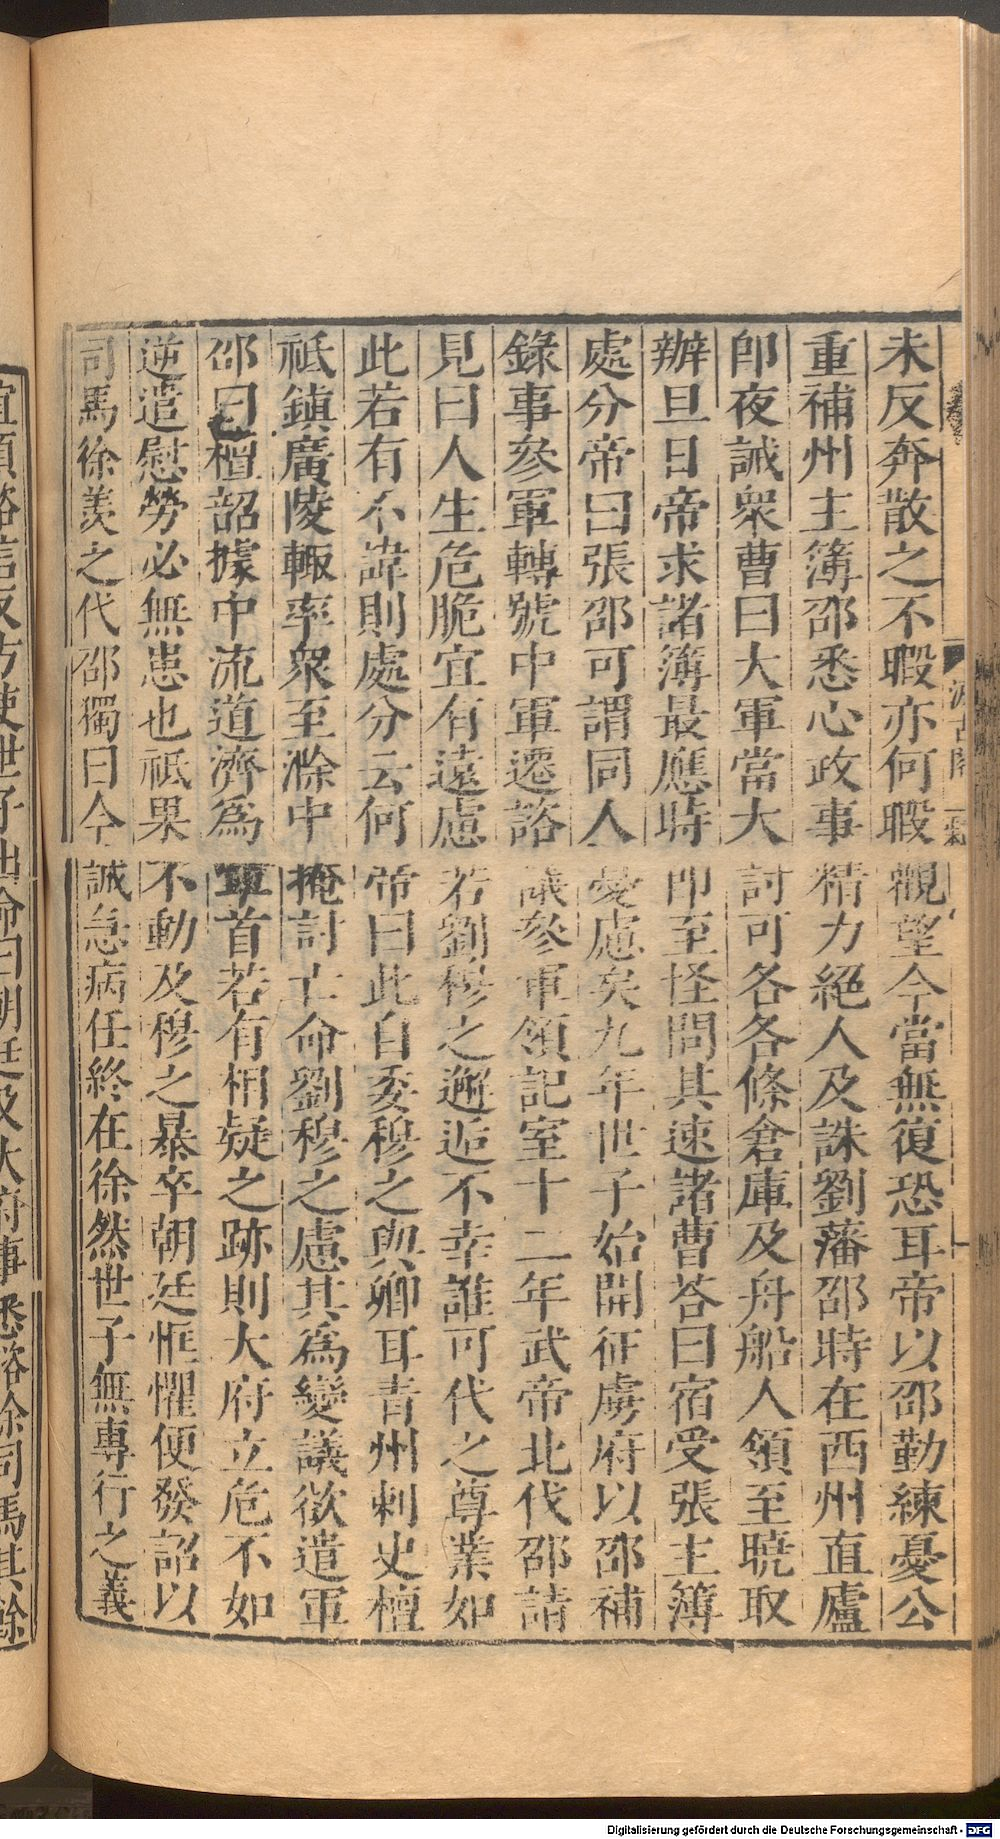 未反奔散之不暇亦何暇觀望今當無復恐耳帝以邵勤練憂公
重補州主簿邵悉心政事精力絕人及誅劉藩邵時在西州直廬
卽夜誡衆曹曰大軍當大討可各各條倉庫及舟船人領至曉取
辦旦日帝求諸簿最應時卽至怪問其速諸曹荅曰宿受張主簿
處分帝曰張邵可謂同人憂慮矣九年世子始開征虜府以邵補
錄事參軍轉號中軍遷諮議參軍領記室十二年武帝北伐邵請
見曰人生危脆宜有遠慮若劉穆之邂逅不幸誰可代之尊業如
此若有不諱則處分云何帝曰此自委穆之與卿耳青州刺史檀
祗鎮廣陵輙率衆至滁中掩討亡命劉穆之慮其爲變議欲遣軍
邵曰檀韶據中流道濟爲軍首若有相疑之跡則大府立危不如
逆遣慰勞必無患也祗果不動及穆之暴卒朝廷恇懼便發詔以
司馬徐羨之代邵獨曰今誠急病任終在徐然世子無專行之義
宜須諮信反方使世子出命曰朝廷及大府事悉諮徐司馬其餘
Digitalisierung gefördert durch die Deutsche Forschungsgemeinschaft - DFG